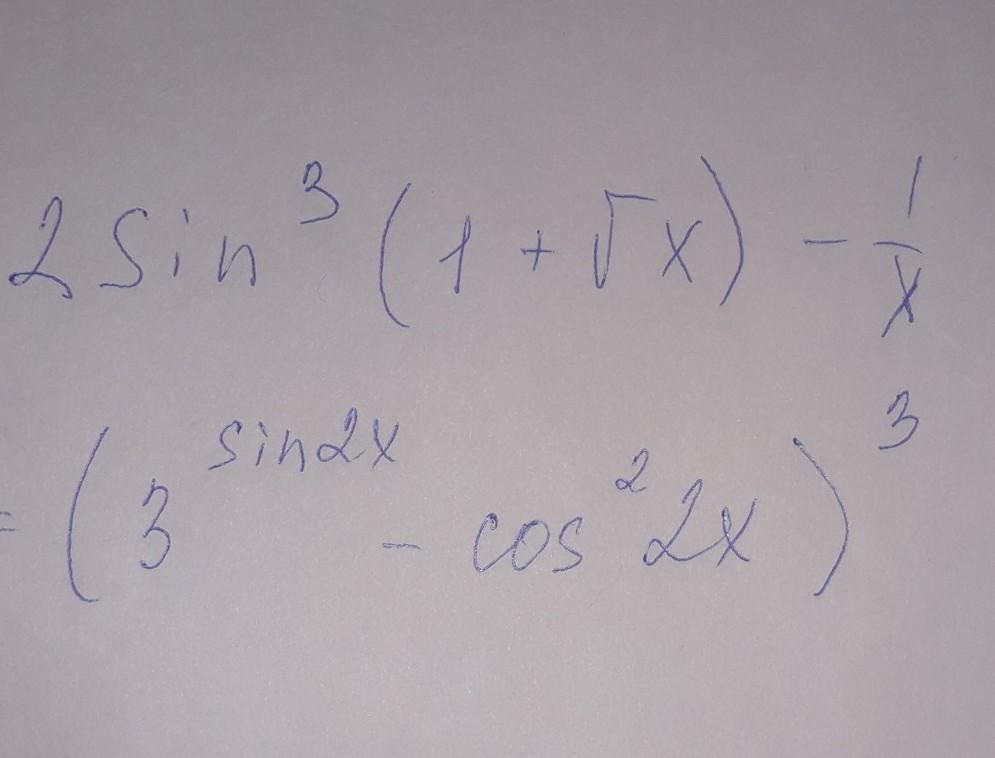 2 Sin³ (1 + √x) - 1/x
= (3^sin2x - cos² 2x)³